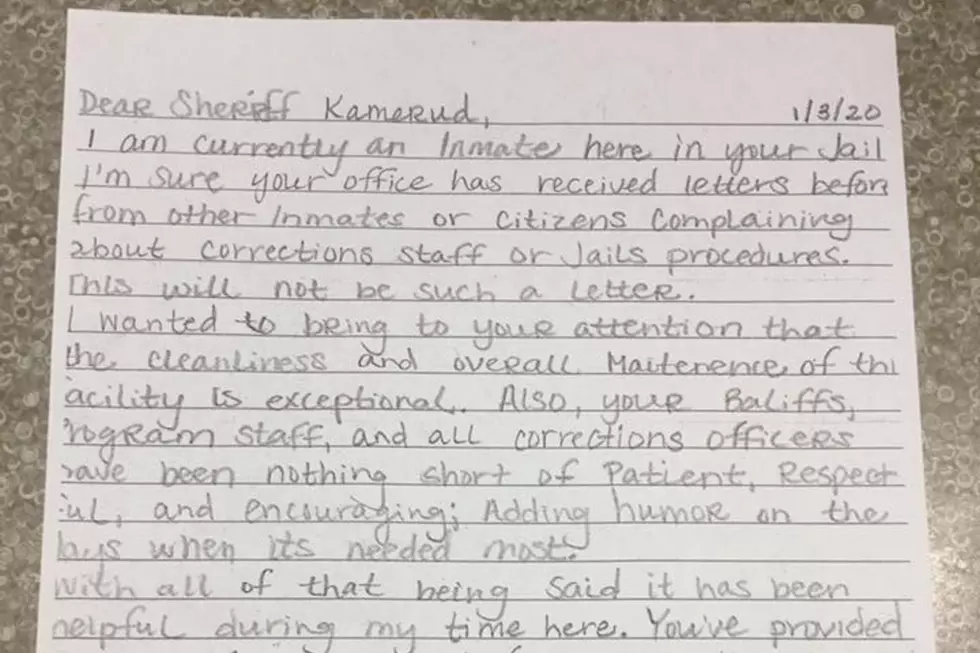 Dear Sheriff Kamerud, 1/3/20
I am currently an Inmate here in your Jail
I'm sure your office has received letters befor
from other Inmates or Citizens Complaining
about corrections staff or Jails procedures.
This will not be such a Letter.
I wanted to bring to your attention that
the cleanliness and overall Maitenence of thi
acility is exceptional. Also, your Baliffs,
rogram staff, and all corrections officers
have been nothing short of Patient, Respect
ful, and encouraging; Adding humor on the
days when its needed most.
With all of that being said it has been
helpful during my time here. You've provided